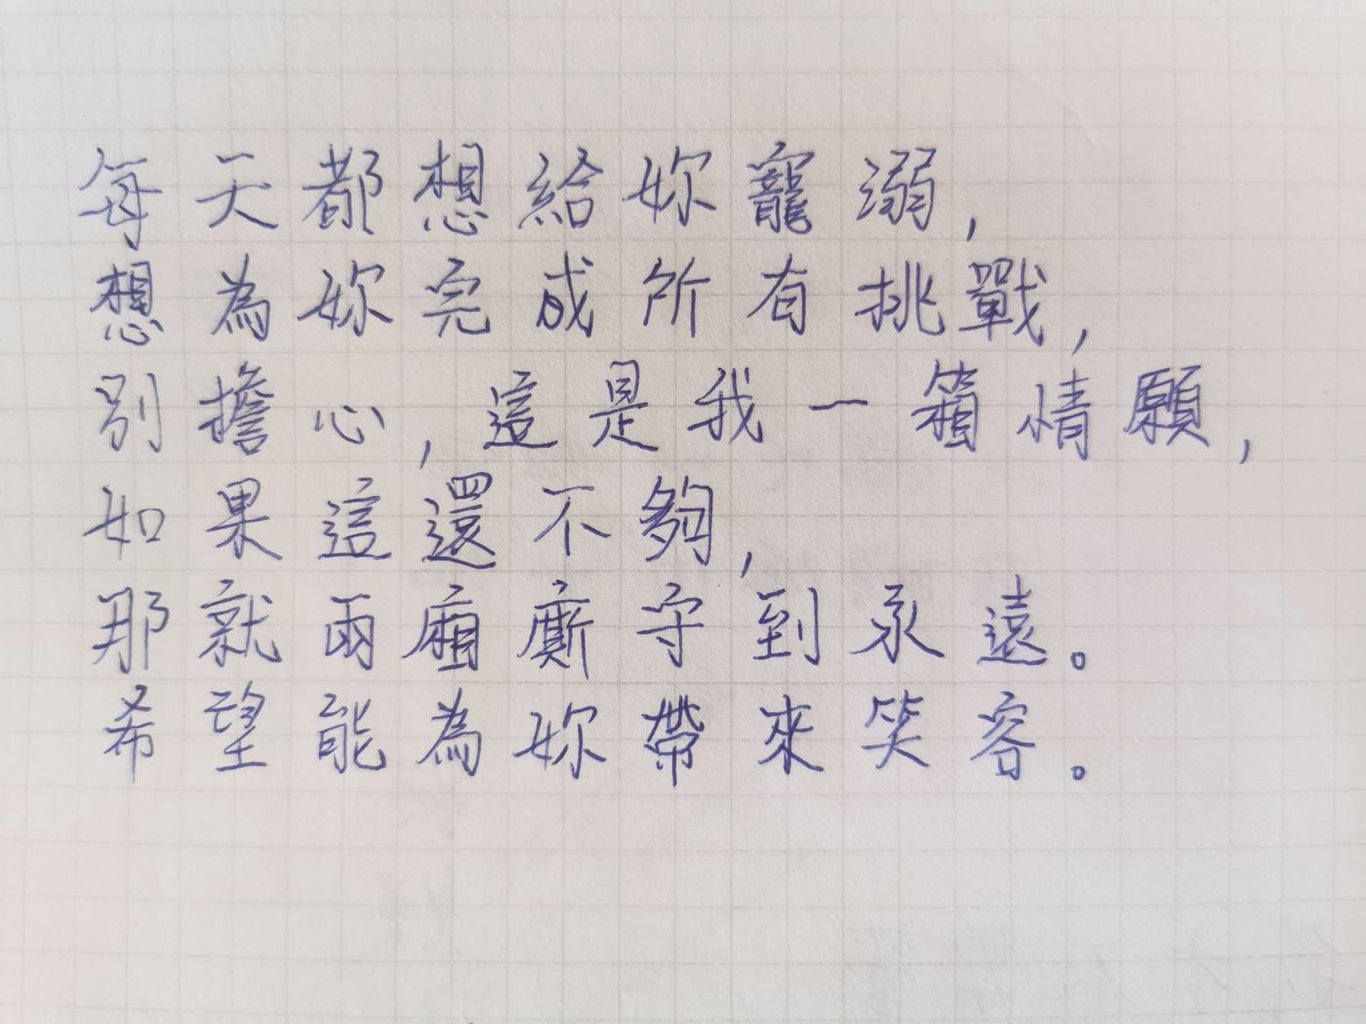 每天都想給妳寵溺，
想為妳完成所有挑戰，
別擔心，這是我一箱情願，
如果這還不夠，
那就兩廂廝守到永遠。
希望能為妳帶來笑容。